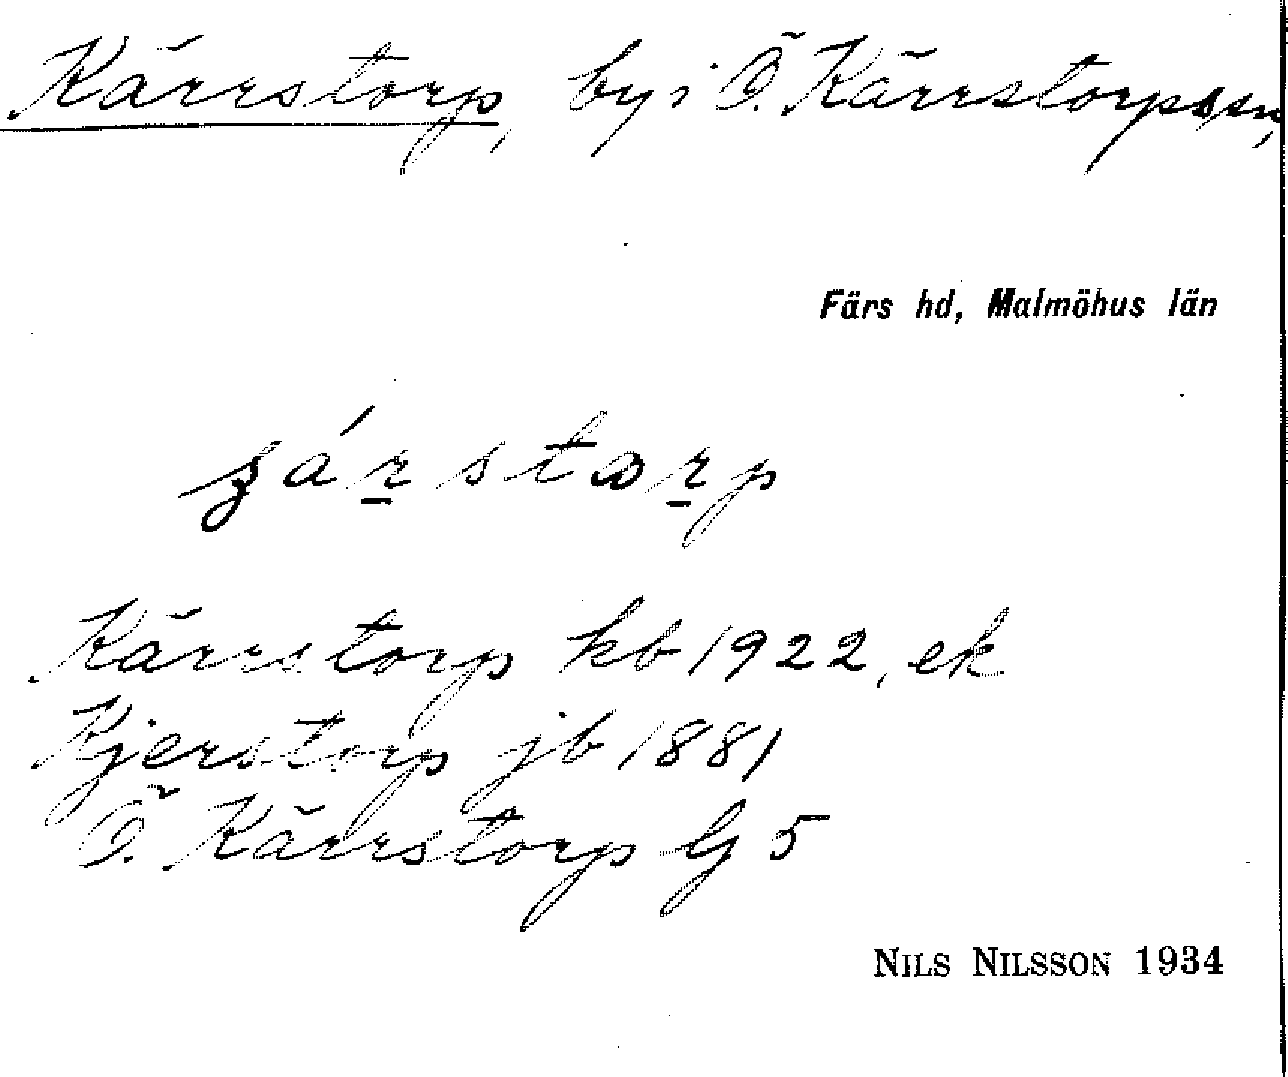 Kärrstorp, by i Ö. Kärrstorps sn,
Färs hd, Malmöhus län
Kärrstorp kb 1922, ek
Kjerstorp jb 1881
Ö. Kärrstorp G 5
NILS NILSSON 1934